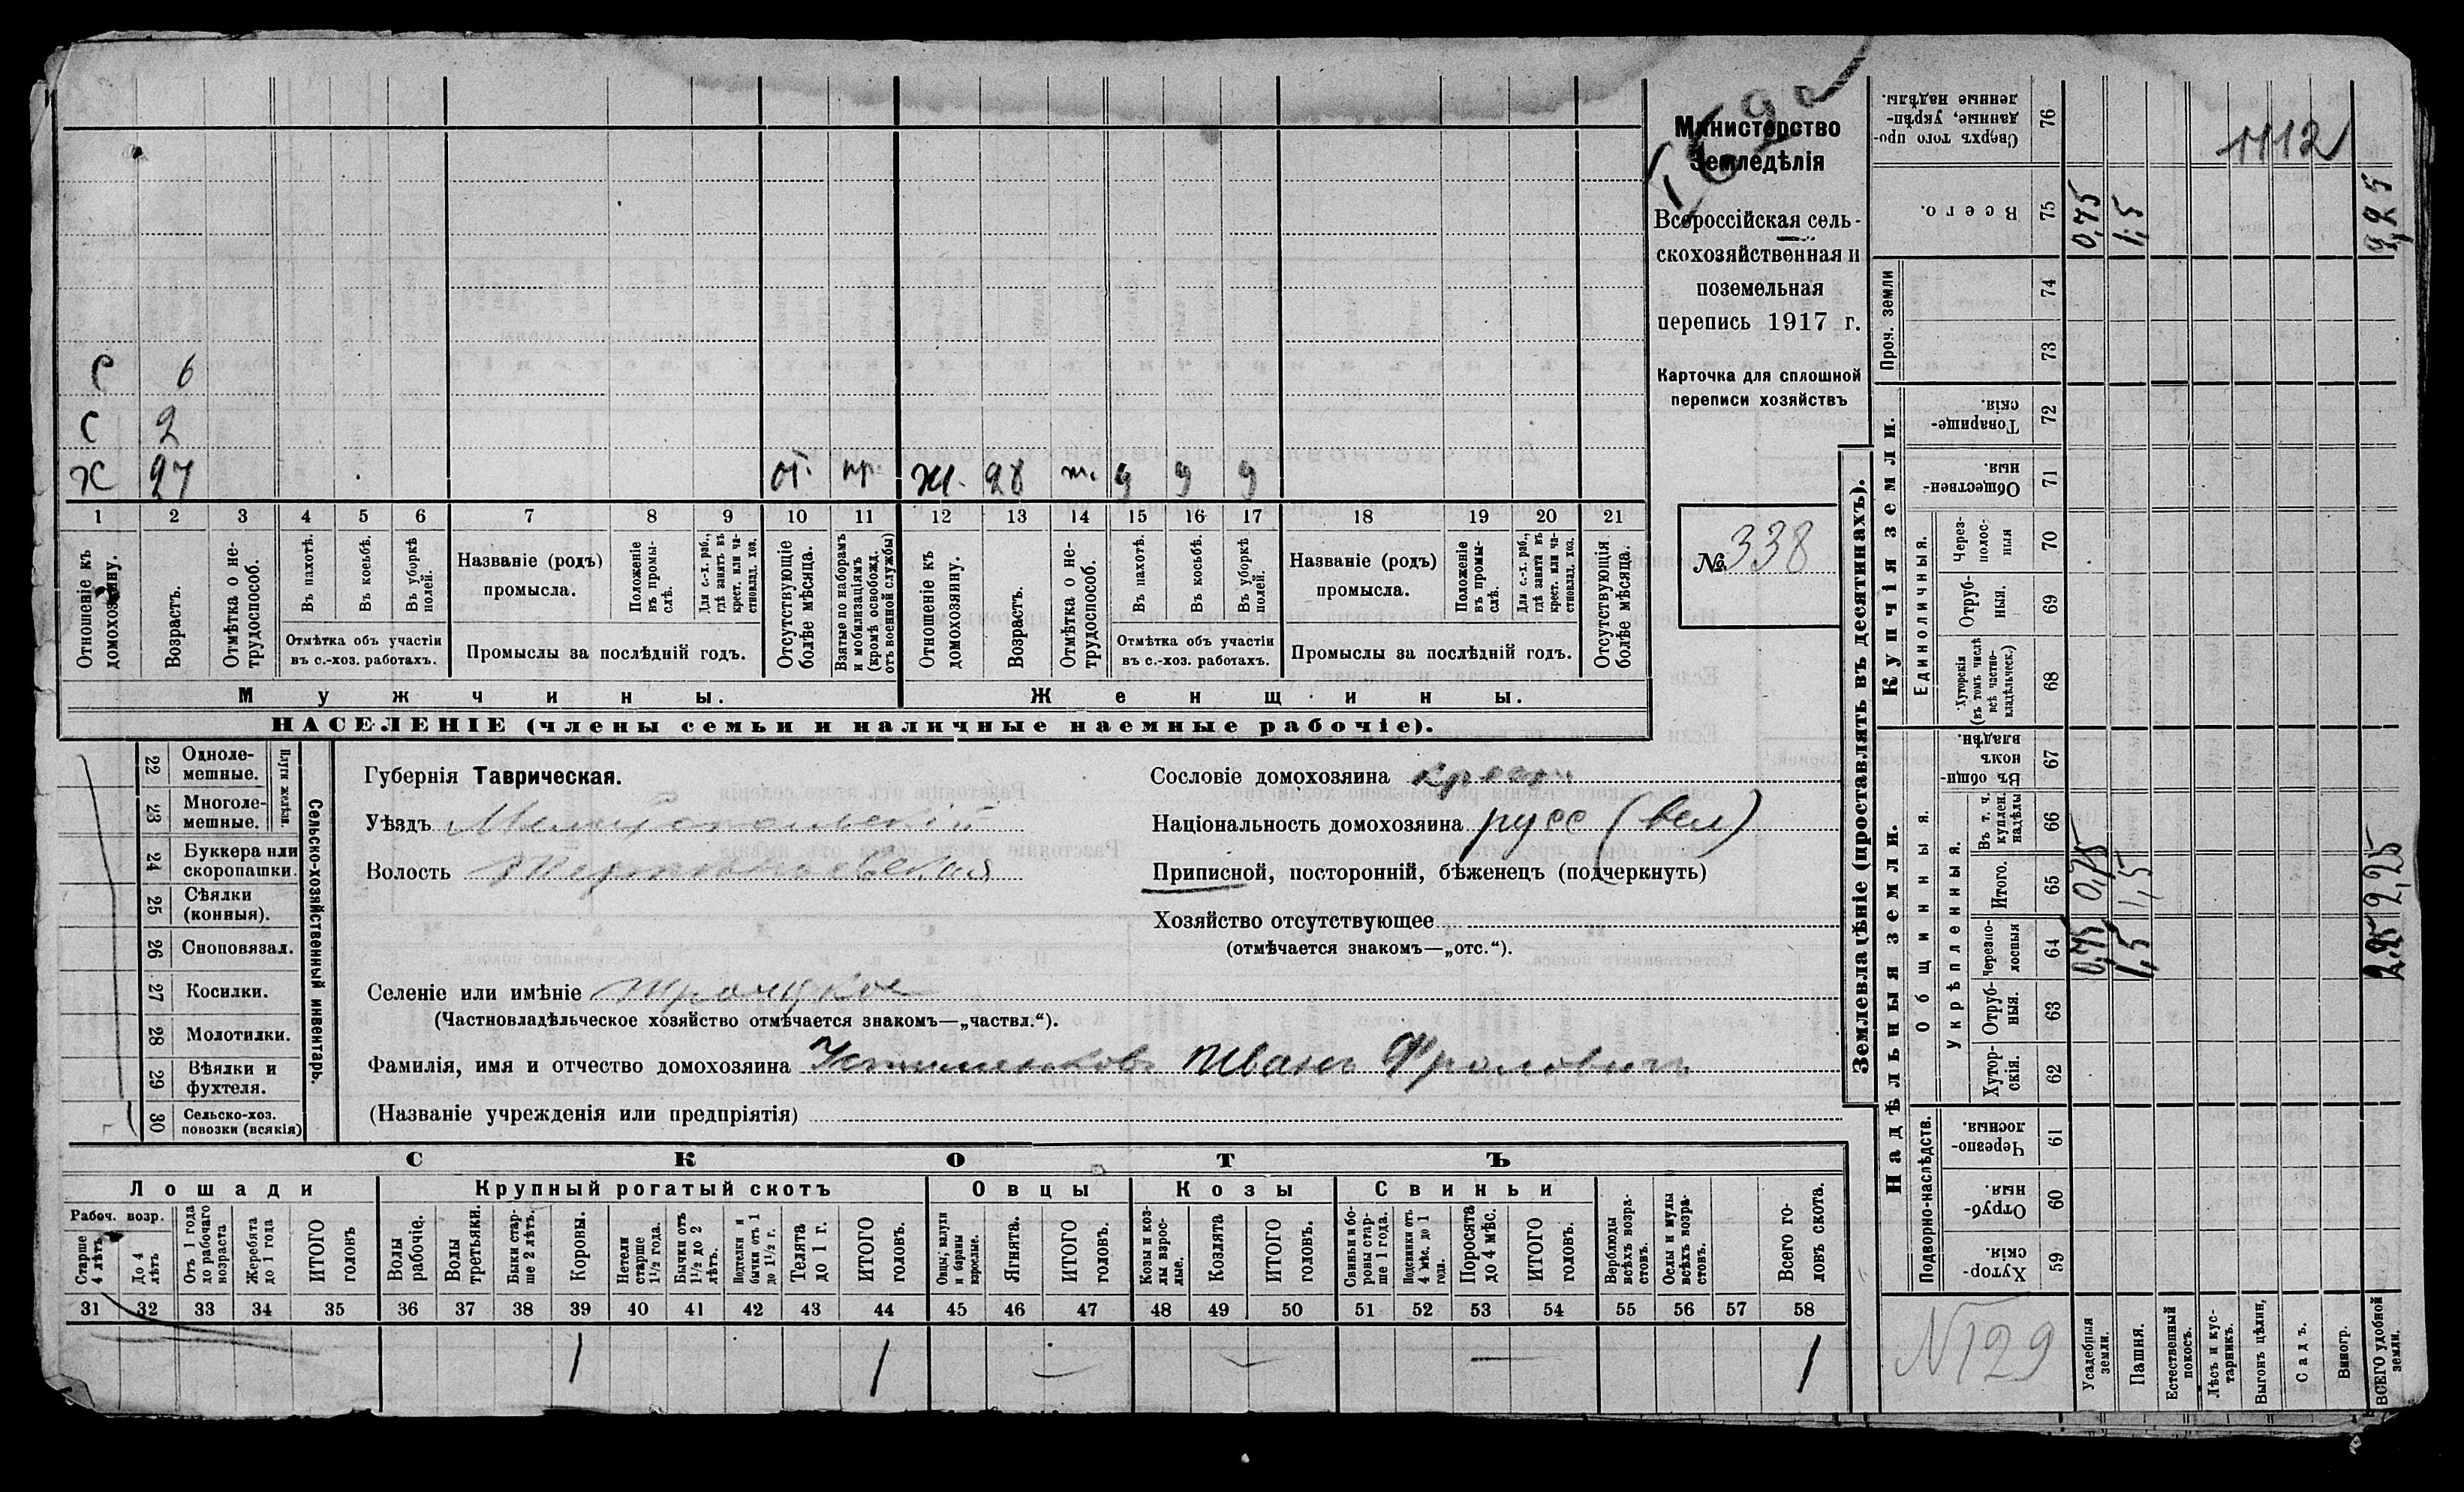 С 6
С 2
Х 27 от. пр. Ж. 28 ж. 9 9 9
1 2 3 4 5 6 7 8 9 10 11 12 13 14 15 16 17 18 19 20 21
Отношеніе къ домохозяину.
Возрастъ.
Отмѣтка о не-трудоспособ.
Въ пахотѣ.
Въ косьбѣ.
Въ уборкѣ полей.
Отмѣтка объ участіи
въ с.-хоз. работахъ.
Названіе (родъ)
промысла.
Положеніе въ промы-слѣ.
Для с.-х. раб., гдѣ занятъ въ крест. или ча-стновлад. хоз.
Промыслы за послѣдній годъ.
Отсутствующіе болѣе мѣсяца.
Взятые по наборамъ и мобилизаціямъ (кромѣ освобожд. отъ военной службы)
Отношеніе къ домохозяину.
Возрастъ.
Отмѣтка о не-трудоспособ.
Въ пахотѣ.
Въ косьбѣ.
Въ уборкѣ полей.
Отмѣтка объ участіи
въ с.-хоз. работахъ.
Названіе (родъ)
промысла.
Положеніе въ промы-слѣ.
Для с.-х. раб., гдѣ занята въ крест. или ча-стновлад. хоз.
Промыслы за послѣдній годъ.
Отсутствующія болѣе мѣсяца.
Мужчины.
Женщины.
НАСЕЛЕНІЕ (члены семьи и наличные наемные рабочіе).
Министерство
Земледѣлія
Всероссійская сель-
скохозяйственная и
поземельная
перепись 1917 г.
Карточка для сплошной
переписи хозяйствъ
№ 338
22 Одноле-мешные.
23 Многоле-мешные.
Плуги желѣзн.
24 Буккера или скоропашки.
25 Сѣялки (конныя).
26 Сноповязал.
27 Косилки.
28 Молотилки.
29 Вѣялки и фухтеля.
30 Сельско-хоз. повозки (всякія)
Сельско-хозяйственный инвентарь.
Губернія Таврическая.
Уѣздъ Мелитопольскій
Волость
Селеніе или имѣніе Троицкое
(Частновладѣльческое хозяйство отмѣчается знакомъ—„частвл.“).
Фамилія, имя и отчество домохозяина Устименковъ Иванъ Фроловичъ
(Названіе учрежденія или предпріятія)
Сословіе домохозяина крест.
Національность домохозяина русс (вел)
Приписной, посторонній, бѣженецъ (подчеркнуть)
Хозяйство отсутствующее
(отмѣчается знакомъ—„отс.“).
СКОТЪ
Лошади
Крупный рогатый скотъ
Овцы
Козы
Свиньи
Рабоч. возр.
Старше 4 лѣтъ
До 4 лѣтъ
Отъ 1 года до рабочаго возраста
Жеребята до 1 года
ИТОГО головъ
Волы рабочіе.
Волы третьяки.
Быки стар-ше 2 лѣтъ.
Коровы.
Нетели старше 1½ года.
Бычки отъ 1½ до 2 лѣтъ.
Подтелки и бычки отъ 1 до 1½ г.
Телята до 1 г.
ИТОГО головъ.
Овцы, валухи и бараны взрослые.
Ягнята.
ИТОГО головъ.
Козы и коз-лы взрос-лые.
Козлята
ИТОГО головъ.
Свиньи и бо-ровы стар-ше 1 года.
Подсвинки отъ 4 мѣс. до 1 года.
Поросята до 4 мѣс.
ИТОГО головъ.
Верблюды всѣхъ возра-стовъ.
Ослы и мулы всѣхъ возра-стовъ.
Всего го-ловъ скота.
31 32 33 34 35 36 37 38 39 40 41 42 43 44 45 46 47 48 49 50 51 52 53 54 55 56 57 58
1 1 — — — 1
Землевладѣніе (проставлять въ десятинахъ).
Надѣльныя земли.
Купчія земли.
Проч. земли
Подворно-наслѣдств.
Общинныя.
Укрѣпленныя.
Единоличныя.
Сверхъ того про-данные, укрѣп-ленные надѣлы. 76
Всего. 75 0,75 1,5 2,25
74
73
Товарище-скія. 72
Обществен-ныя. 71
Через-полос-ныя 70
Отруб-ныя. 69
Хуторскія (въ томъ числѣ всѣ частно-владѣльческ.) 68
Въ общи-номъ владѣн. 67
Въ т. ч. куплен. надѣлы 66
Итого. 65 0,75 1,5 2,25
Черезпо-лосныя 64 0,75 1,5 2,25
Отруб-ныя. 63
Хутор-скія. 62
Черезпо-лосныя. 61
Отруб-ныя. 60
Хутор-скія. 59
1112
N129
Усадебныя земли.
Пашня.
Естественный покосъ.
Лѣсъ и кус-тарникъ.
Выгонъ цѣлин,
Садъ.
Виногр.
ВСЕГО удобной земли.